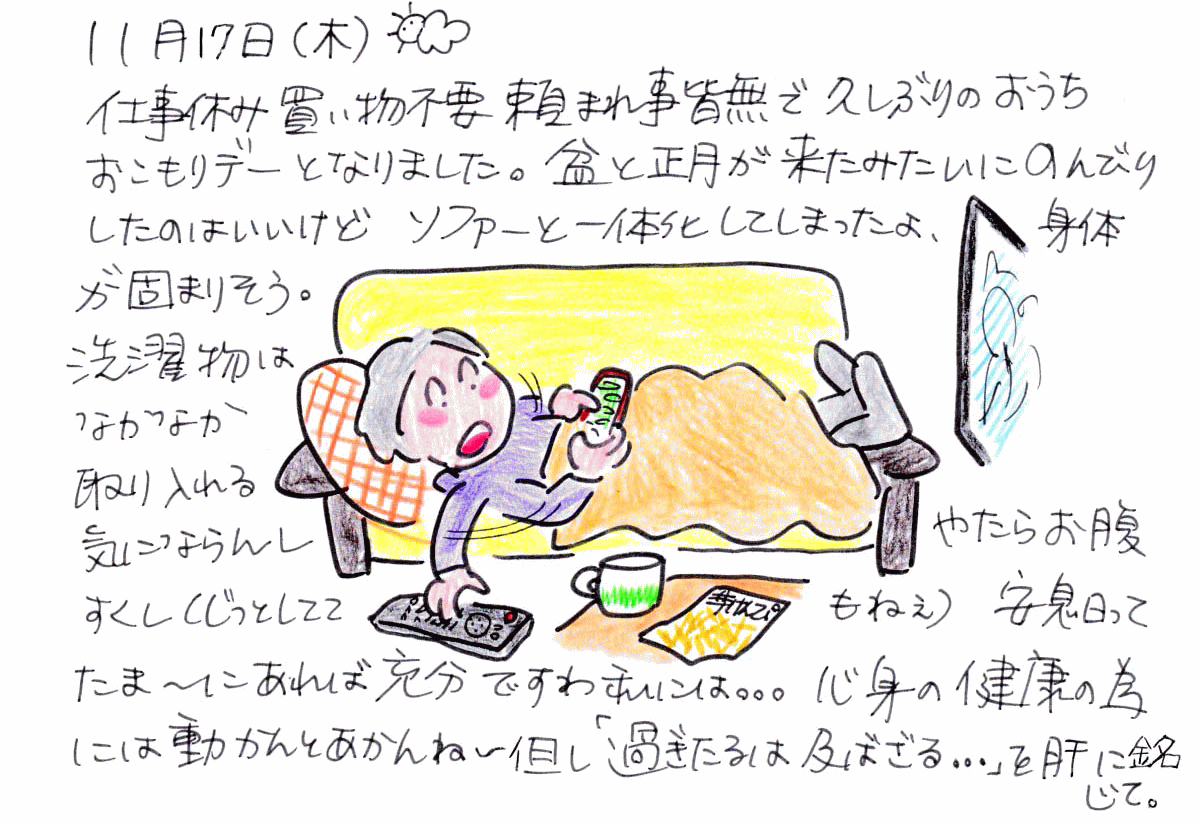 11月17日(木)
仕事休み買い物不要 頼まれ事皆無で 久しぶりの おうち
おこもりデーとなりました。盆と正月が 来たみたいに のんびり
したのはいいけど ソファーと一体化してしまったよ、身体
が固まりそう。
洗濯物は
なかなか
取り入れる
気にならんし やたらお腹
すくし(じっとしてて もねぇ) 安息日って
たま〜にあれば充分ですわ私には。。。心身の健康の為
には動かんとあかんね〜但し「過ぎたるは及ばざる…」を肝に銘
じて。